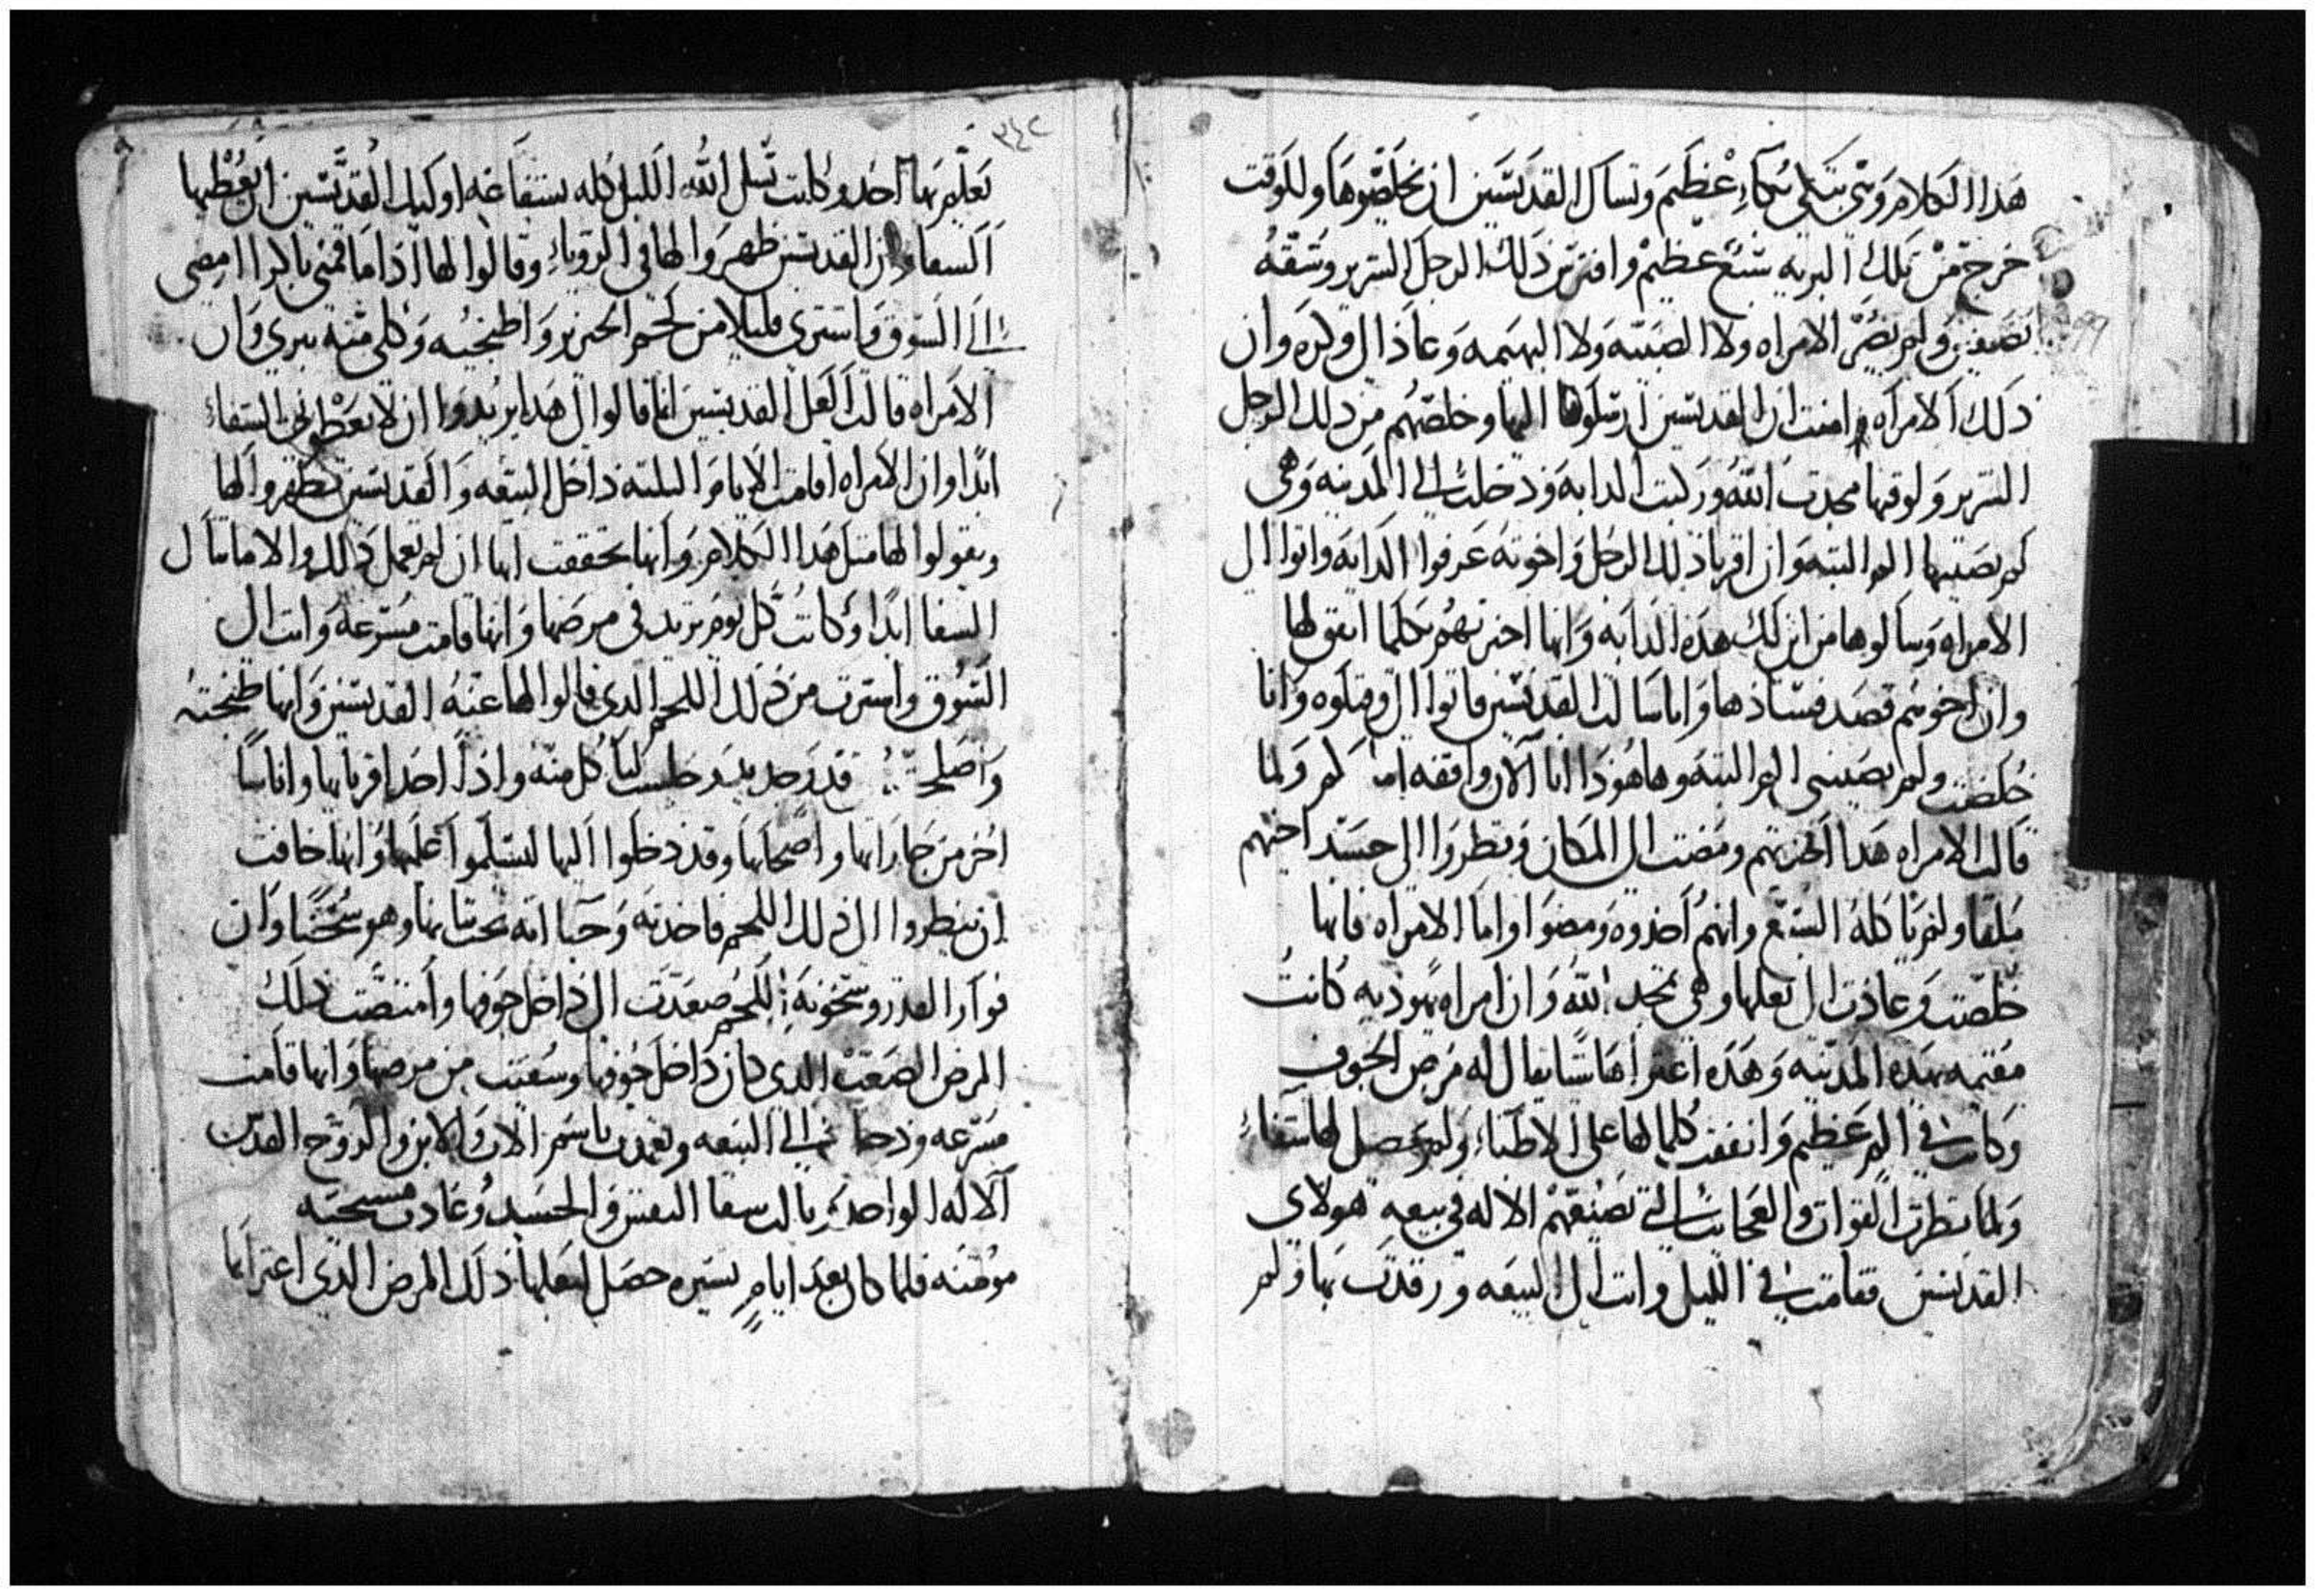 هدا الكلام وهي تبكي بكاء عظيم وتسال القديسين ان يخلصوها وللوقت
خرج من تلك البريه سبع عظيم وافترس ذلك الرجل الشرير وشقه
نصفين ولم يضر الامراه ولا الصبيه ولا البهيمه وعاد الى وكره وان
ذلك الامراه امنت ان القديسين ارسلوه اليها وخلصهم من ذلك الرجل
الشرير ولوقتها مجدت الله وركبت الدابه ودخلت الي المدينه وهي
لم يصيبها الم البته وان اقربا ذلك الرجل واخوته عرفوا الدابه واتوا الى
الامراه وسالوها من اين لك هذه الدابه وانها اخبرتهم بكلما اتفق لها
وان اخوهم قصد فسادها وانا سالت القديسين فاتوا الى وقتلوه وانا
خلصت ولم يصيبني الم البته وها هودا انا الان واقفه امامكم ولما
قالت الامراه هدا اخذتهم ومضت الى المكان ونظروا الى جسد اخيهم
ملقا ولم ياكله السبع وانهم اخدوه ومضوا واما الامراه فانها
خلصت وعادت الى بعلها وهي تمجد الله وان امراه يهوديه كانت
مقيمه بهده المدينه وهده اعتراها شيا يقال له مرض الجوف
وكانت في الم عظيم وانفقت كلما لها على الاطباء ولم يحصل لها شفاء
ولما نظرت القوات والعجايب التي تصنعهم الاله في بيعه هولاي
القديسين فقامت في الليل واتت الى البيعه ورقدت بها ولم
٣٤٢
يعلم بها احد وكانت تسل الله الليل كله بشفاعه اوليك القديسين ان يعطيها
الشفا وان القديسين ظهروا لها في الروياء وقالوا لها اذا ما قمتي باكرا امضي
الى السوق واشتري قليلا من لحم الخنزير واطبخيه وكلي منه تبري وان
الامراه قالت لعل القديسين انما قالوا لي هدا يريدوا ان لا يعطوني الشفاء
ابدا وان الامراه اقامت الايام الثلثه داخل البيعه والقديسين تظهروا لها
ويقولوا لها مثل هدا الكلام وانها تحققت انها ان لم تعمل ذلك والا ما تنال
الشفا ابدا وكانت كل يوم تزيد في مرضها وانها قامت مسرعه واتت الى
السوق واشترت من ذلك اللحم الدي قالوا لها عنه القديسين وانها طبختة
واصلحته قدر جديد وجلست لتاكل منه واذا احد اقربايها واناسا
اخر من جاراتها واصحابها وقد دخلوا اليها ليسلموا عليها وانها خافت
ان ينظروا الى ذلك اللحم فاخدته وخباته تحت ثيابها وهو سخنا وان
فوار القدر وسخونة اللحم صعدت الى داخل جوفها وامتصت ذلك
المرض الصعب الدي كان داخل جوفها وشفيت من مرضها وانها قامت
مسرعه ودخلت الي البيعه وتعمدت باسم الاب والابن والروح القدس
الاله الواحد ونالت شفا النفس والجسد وعادت مسيحيه
مومنه فلما كان بعد ايام يسيره حصل لبعلها ذلك المرض الدي اعتراها